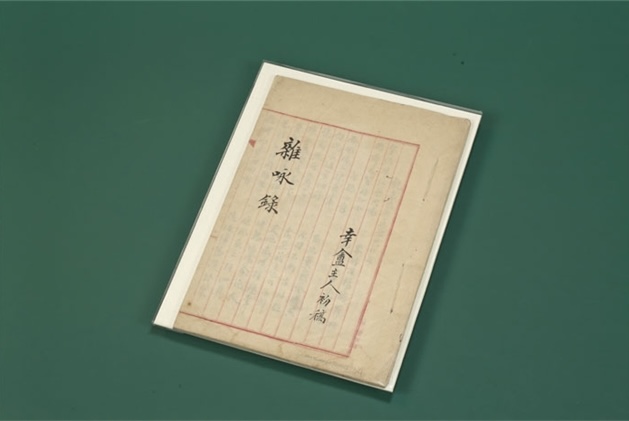 雜咏錄
幸盦主人初稿